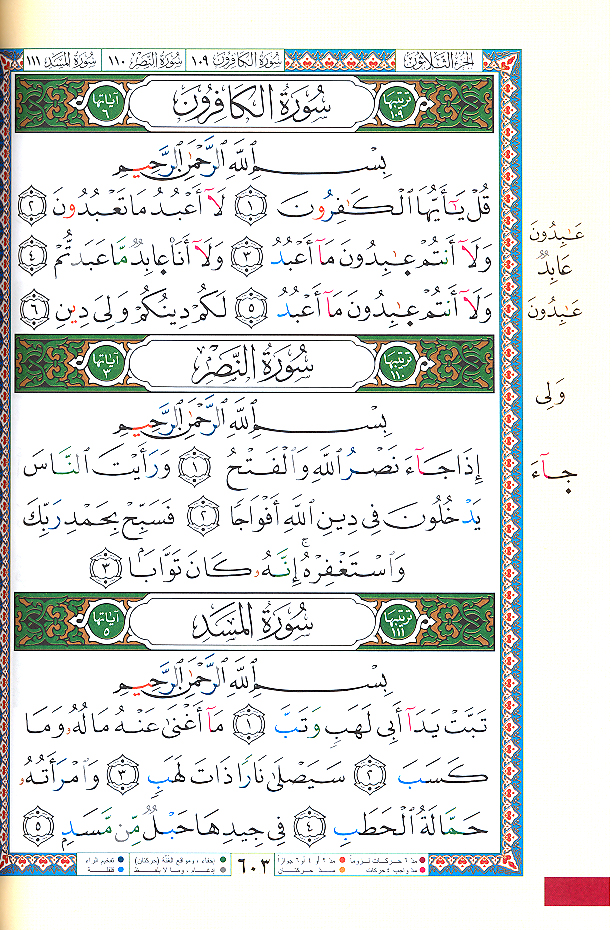 الجزء الثلاثون سورة الكافرون ١٠٩ سورة النصر ١١٠ سورة المسد ١١١
ترتيبها ١٠٩ سورة الكافرون آياتها ٦
بِسْمِ ٱللَّهِ ٱلرَّحْمَٰنِ ٱلرَّحِيمِ
قُلْ يَٰٓأَيُّهَا ٱلْكَٰفِرُونَ ١ لَآ أَعْبُدُ مَا تَعْبُدُونَ ٢
وَلَآ أَنتُمْ عَٰبِدُونَ مَآ أَعْبُدُ ٣ وَلَآ أَنَا۠ عَابِدٌ مَّا عَبَدتُّمْ ٤
وَلَآ أَنتُمْ عَٰبِدُونَ مَآ أَعْبُدُ ٥ لَكُمْ دِينُكُمْ وَلِىَ دِينِ ٦
عَٰبِدُونَ
عَابِدٌ
عَٰبِدُونَ
ترتيبها ١١٠ سورة النصر آياتها ٣
وَلِى
بِسْمِ ٱللَّهِ ٱلرَّحْمَٰنِ ٱلرَّحِيمِ
إِذَا جَآءَ نَصْرُ ٱللَّهِ وَٱلْفَتْحُ ١ وَرَأَيْتَ ٱلنَّاسَ
جَآءَ
يَدْخُلُونَ فِى دِينِ ٱللَّهِ أَفْوَاجًا ٢ فَسَبِّحْ بِحَمْدِ رَبِّكَ
وَٱسْتَغْفِرْهُ ۚ إِنَّهُۥ كَانَ تَوَّابًۢا ٣
ترتيبها ١١١ سورة المسد آياتها ٥
بِسْمِ ٱللَّهِ ٱلرَّحْمَٰنِ ٱلرَّحِيمِ
تَبَّتْ يَدَآ أَبِى لَهَبٍ وَتَبَّ ١ مَآ أَغْنَىٰ عَنْهُ مَالُهُۥ وَمَا
كَسَبَ ٢ سَيَصْلَىٰ نَارًا ذَاتَ لَهَبٍ ٣ وَٱمْرَأَتُهُۥ
حَمَّالَةُ ٱلْحَطَبِ ٤ فِى جِيدِهَا حَبْلٌ مِّن مَّسَدٍ ٥
مد ٦ حركات لزوماً مد ٢ أو ٤ أو ٦ جوازاً ٦٠٣ إخفاء، ومواقع الغنّة (حركتان) تفخيم الراء
مد واجب ٤ حركات مد حركتان إدغام، وما لا يلفظ قلقلة